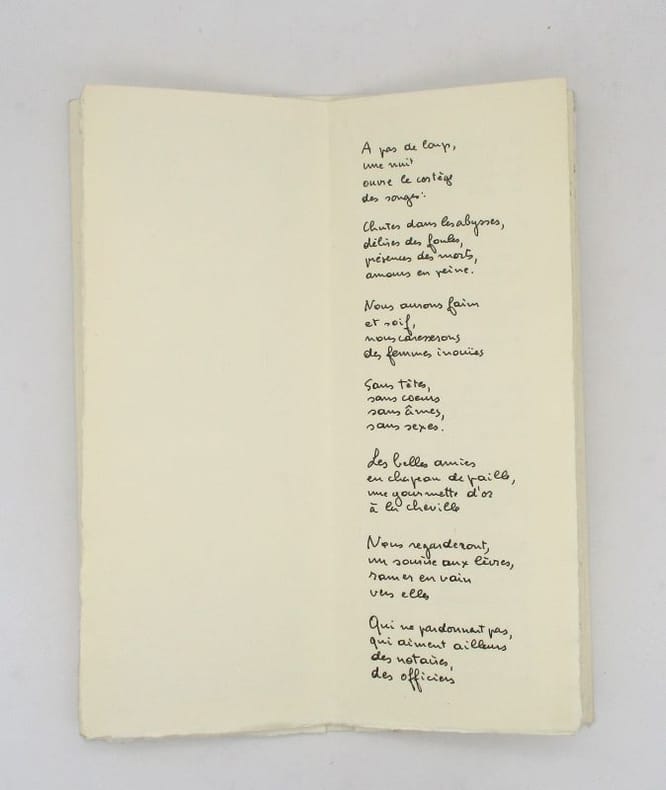 A pas de loup,
une nuit
ouvre le cortège
des songes :
Chutes dans les abysses,
délires des foules,
présences des morts,
amours en peine.
Nous aurons faim
et soif,
nous caresserons
des femmes inouïes
Sans têtes,
sans coeurs
sans âmes,
sans sexes.
Les belles amies
en chapeau de paille,
une gourmette d'or
à la cheville
Nous regarderont,
un sourire aux lèvres,
ramer en vain
vers elles
Qui ne pardonnent pas,
qui aiment ailleurs
des notaires,
des officiers